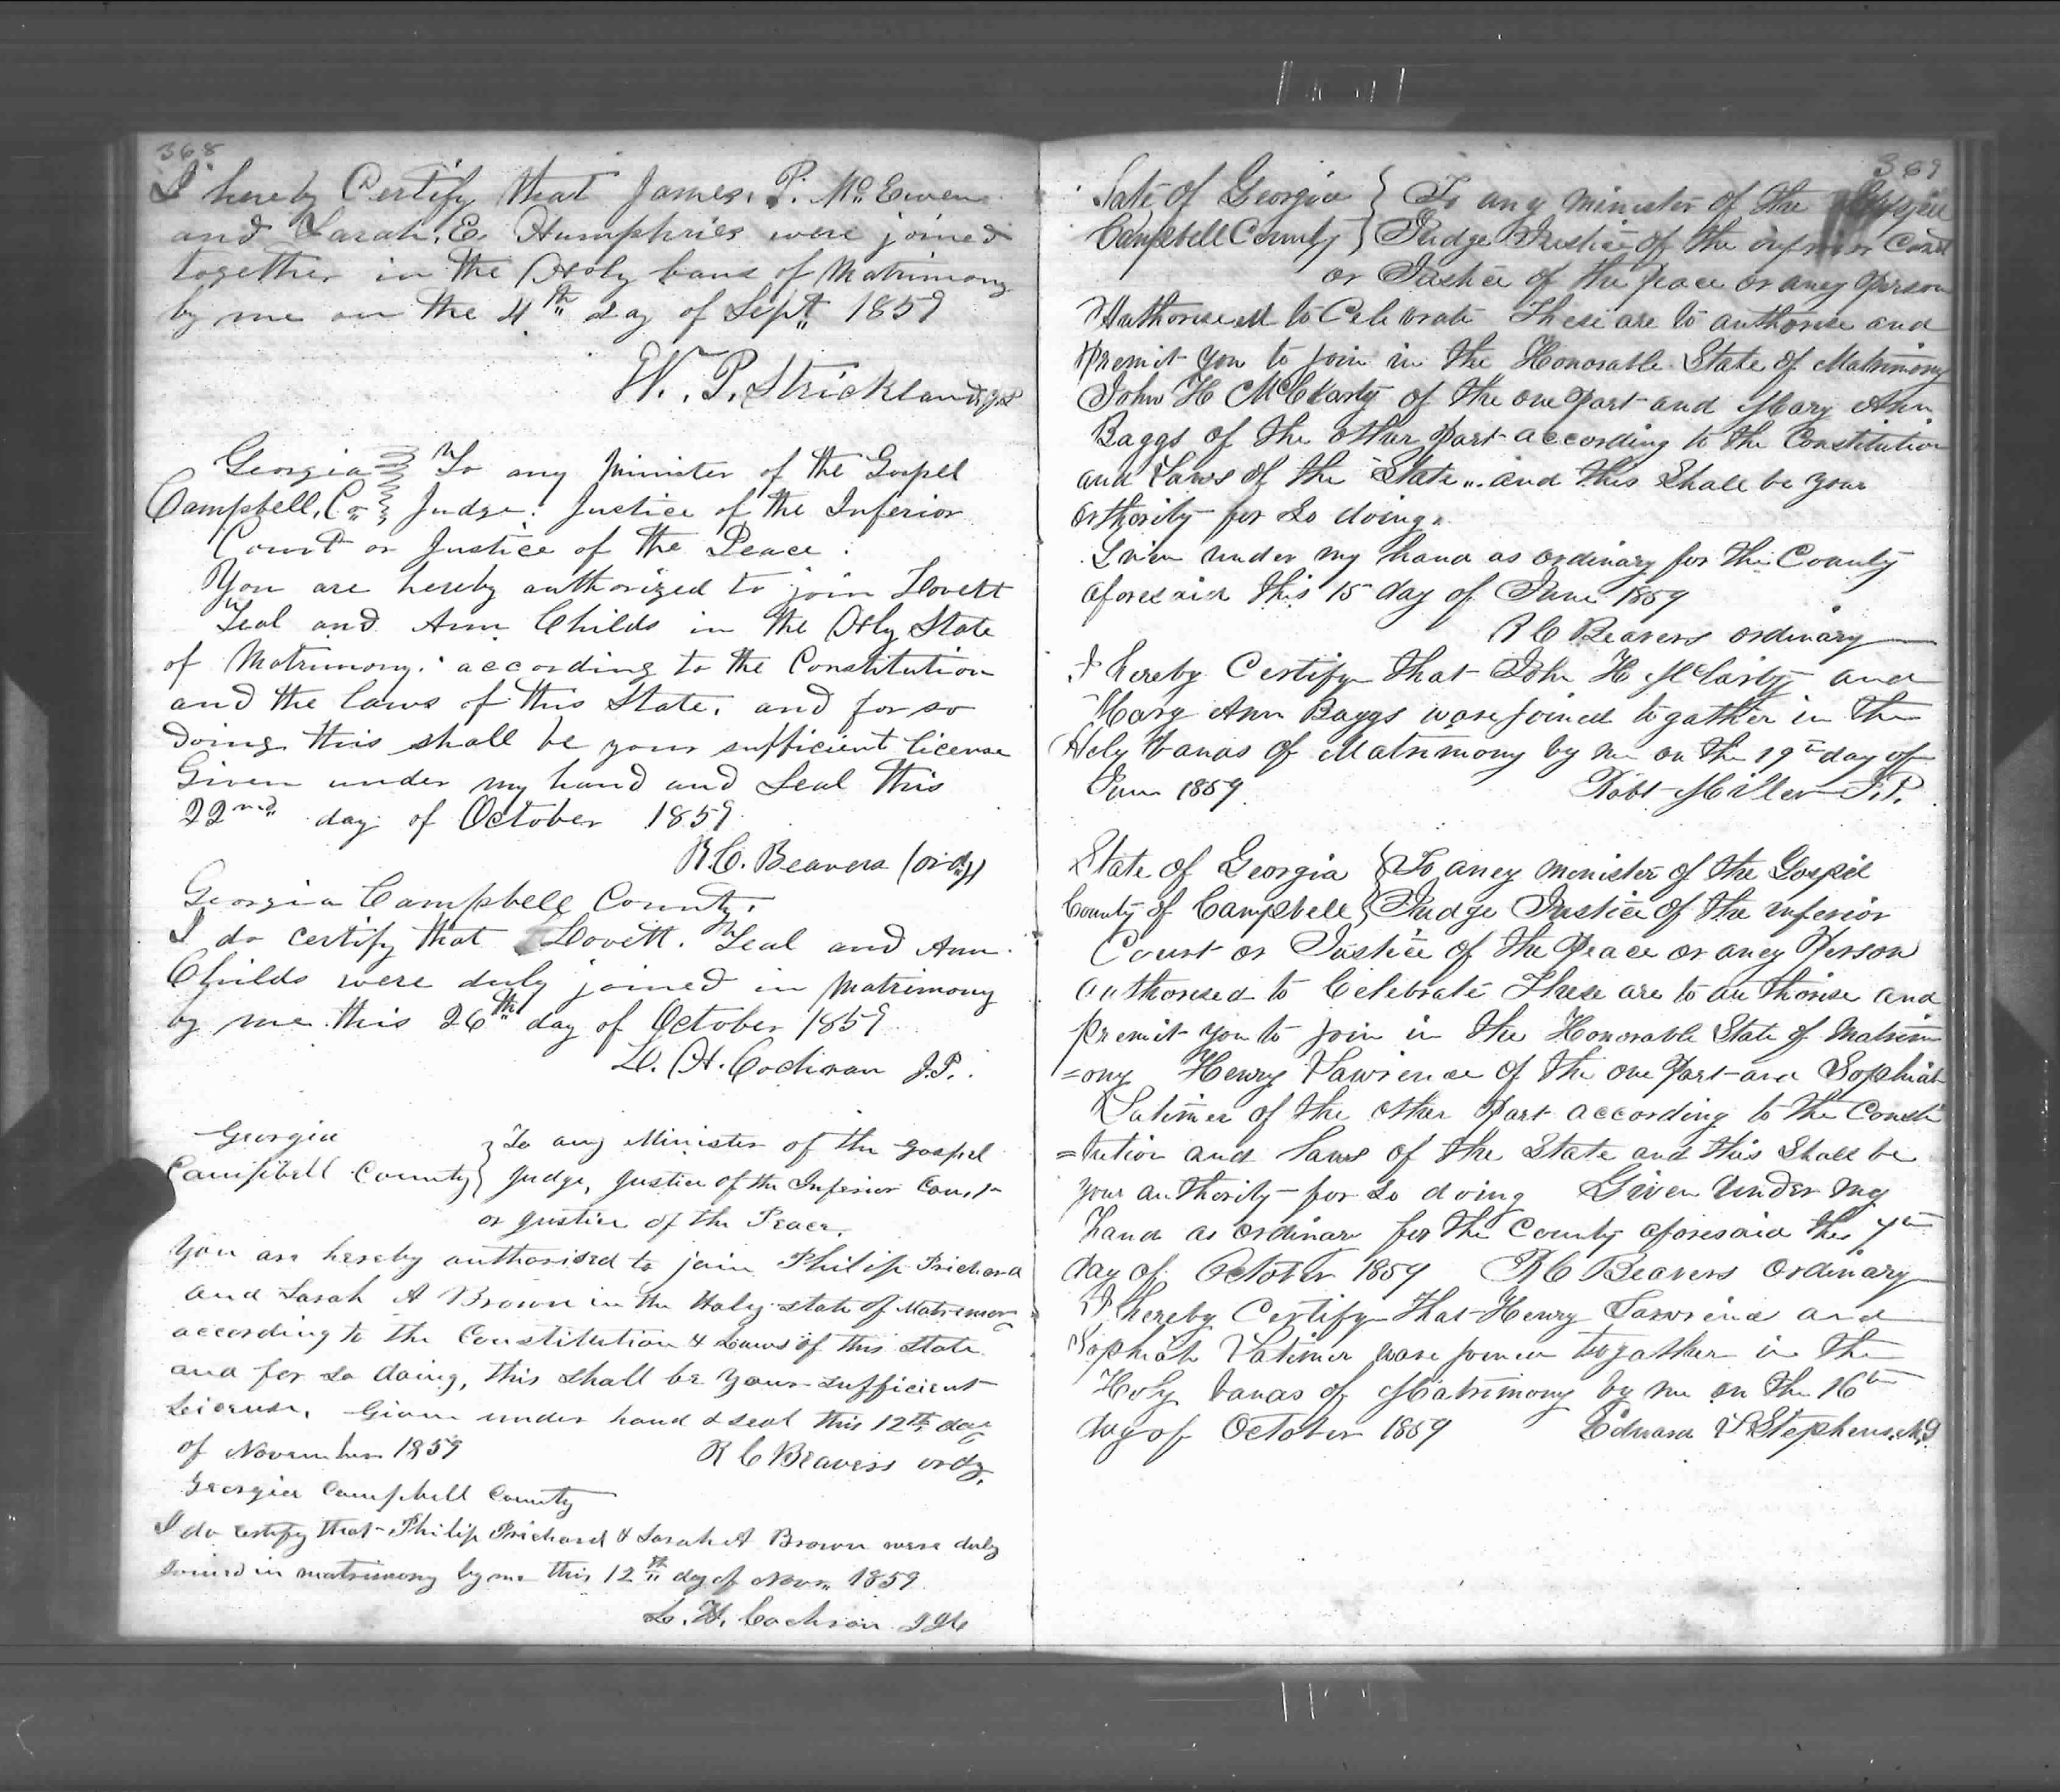 368
I hereby Certify that James. P. McEwen
and Sarah. E. Humphries were joined
together in the Holy bans of Matrimony
by me on the 4th day of Sept 1859
W. P. Strickland
Georgia To any Minister of the Gospel
Campbell, Co. Judge. Justice of the Inferior
Court or Justice of the Peace.
You are hereby authorized to join Lovett
Teal and Ann Childs in the Holy State
of Matrimony. according to the Constitution
and the laws of this State. and for so
doing this shall be your sufficient license
Given under my hand and Seal this
22nd day of October 1859
R. C. Beavers (ordy)
Georgia Campbell County.
I do certify that Lovett. Teal and Ann
Childs were duly joined in matrimony
by me this 26th day of October 1859
L. H. Cochran J.P.
Georgia
Campbell County } To any Minister of the Gospel
Judge, Justice of the Inferior Court
or Justice of the Peace.
You are hereby authorised to join Philip Prichard
and Sarah A Brown in the Holy state of Matrimony
according to the Constitution & Laws of this State
and for so doing, this shall be your sufficient
License. Given under hand & seal this 12th day
of November 1859 R C Beavers ordy.
Georgia Campbell County
I do certify that Philip Prichard & Sarah A Brown were duly
Joined in matrimony by me this 12th day of Nov. 1859
L. H. Cochran
369
Sate of Georgia } To any minister of the
Campbell County } Judge Justice of the inferior Court
or Justice of the Peace or aney Person
Authorised to Celebrate These are to authorise and
Premit you to join in the Honorable State of Matrimony
John H McClarty of the one Part and Mary Ann
Baggs of the other Part according to the Constitution
and Laws of the State and this Shall be your
orthority for So doing
Given under my hand as ordinary for the County
aforesaid this 15 day of June 1859
R C Beavers ordinary
I hereby Certify that John H McClarty and
Mary Ann Baggs ware joined togather in the
Holy banas of Matrimony by me on the 19th day of
June 1859 Robt Miller J.P.
State of Georgia } To aney minister of the Gospel
County of Campbell } Judge Justice of the inferior
Court or Justice of the Peace or aney Person
authorised to Celebrate These are to authorise and
premit you to join in the Honorable State of Matrim
=ony Henry Lawrence of the one Part and Sophiah
Latimer of the other Part according to the Consti
=tution and Laws of the State and this Shall be
your authority for So doing Given under my
hand as ordinary for the County aforesaid this 7th
day of October 1859 R C Beavers Ordinary
I hereby Certify that Henry Lawrence and
Sophiah Latimer ware joined togather in the
Holy banas of Matrimony by me on the 16th
day of October 1859 Edward Stephens